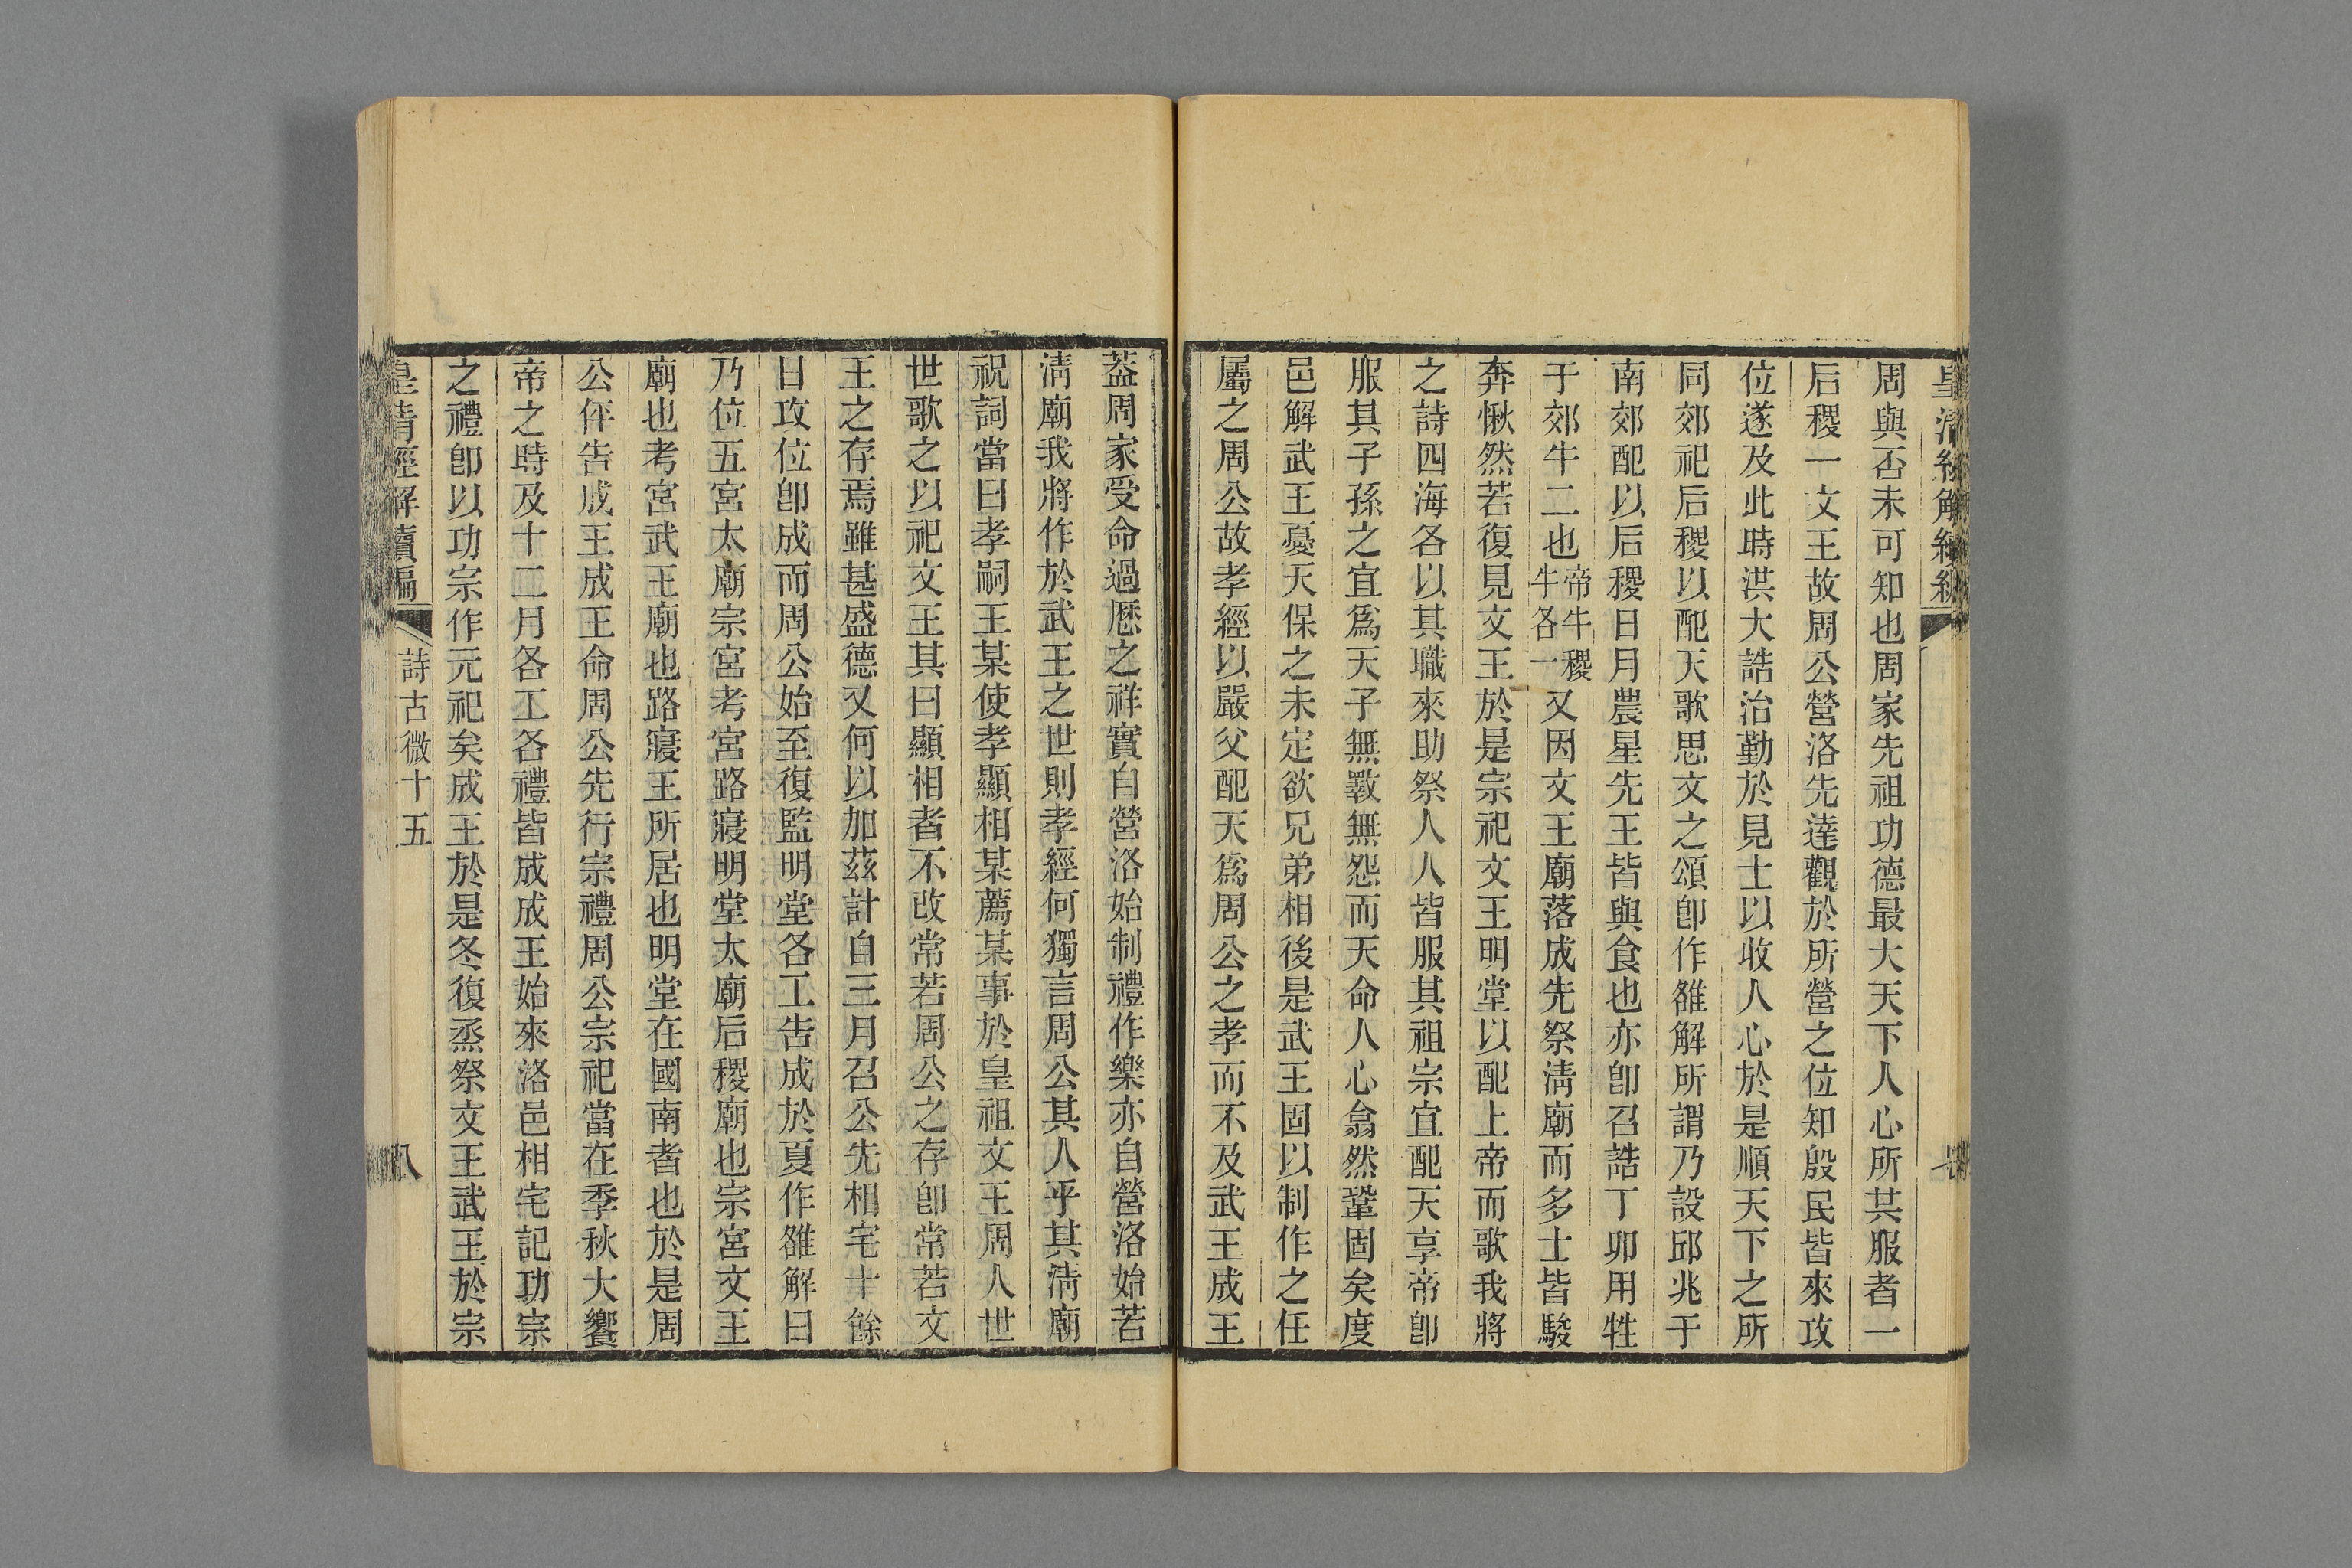 周與否未可知也周家先祖功德最大天下人心所共服者一
后稷一文王故周公營洛先達觀於所營之位知殷民皆來攻
位遂及此時洪大誥治勤於見士以收人心於是順天下之所
同郊祀后稷以配天歌思文之頌卽作雒解所謂乃設邱兆于
南郊配以后稷日月農星先王皆與食也亦卽召誥丁卯用牲
于郊牛二也帝牛稷牛各一又因文王廟落成先祭淸廟而多士皆駿
奔愀然若復見文王於是宗祀文王明堂以配上帝而歌我將
之詩四海各以其職來助祭人人皆服其祖宗宜配天享帝卽
服其子孫之宜爲天子無斁無怨而天命人心翕然鞏固矣度
邑解武王憂天保之未定欲兄弟相後是武王固以制作之任
屬之周公故孝經以嚴父配天爲周公之孝而不及武王成王
蓋周家受命過厯之祥實自營洛始制禮作樂亦自營洛始若
淸廟我將作於武王之世則孝經何獨言周公其人乎其淸廟
祝詞當曰孝嗣王某使孝顯相某薦某事於皇祖文王周人世
世歌之以祀文王其曰顯相者不改常若周公之存卽常若文
王之存焉雖甚盛德又何以加茲計自三月召公先相宅十餘
日攻位卽成而周公始至復監明堂各工告成於夏作雒解曰
乃位五宮太廟宗宮考宮路寢明堂太廟后稷廟也宗宮文王
廟也考宮武王廟也路寢王所居也明堂在國南者也於是周
公伻告成王成王命周公先行宗禮周公宗祀當在季秋大饗
帝之時及十二月各工各禮皆成成王始來洛邑相宅記功宗
之禮卽以功宗作元祀矣成王於是冬復烝祭文王武王於宗
皇淸經解續編 詩古微十五 八